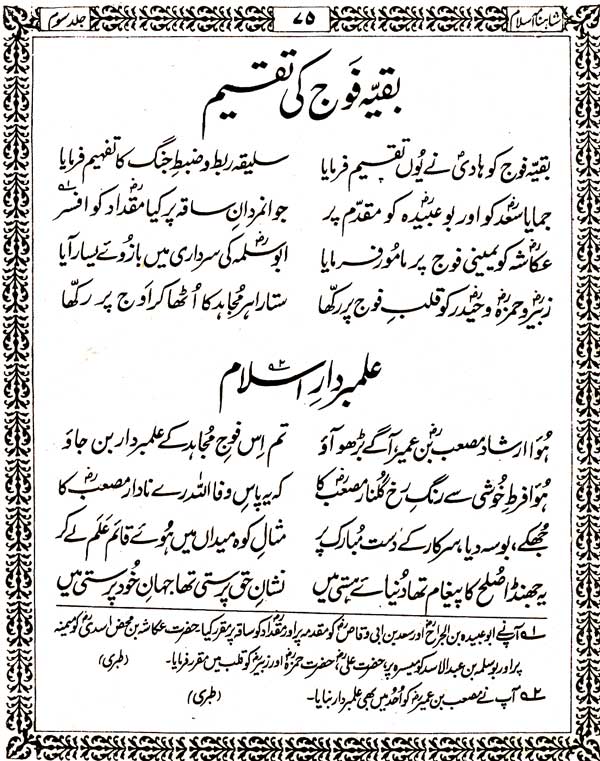 شاہنامہ اسلام ۷۵ جلد سوم
بقیّہ فَوج کی تقسیم
بقیّہ فوج کو ہادیؐ نے یُوں تقسیم فرمایا سلیقہ ربط و ضبطِ جنگ کا تفہیم فرمایا
جمایا سعدؓ کو اور بو عبیدہؓ کو مقدّم پر جوانمردانِ ساقہ پر کیا مقدادؓ کو افسر ؂۱
عکاشہؓ کو یمینی فوج پر مامُور فرمایا ابو سلمہؓ کی سرداری میں بازُوئے یسار آیا
زبیرؓ و حمزہؓ و حیدرؓ کو قلبِ فوج پر رکھّا ستارا ہر مُجاہد کا اُٹھا کر اَوج پر رکھّا
علمبردارِ اسلام ؂۲
ہُوا ارشاد مصعبؓ بن عمیر، آگے بڑھو آؤ تم اِس فوجِ مُجاہد کے علمبردار بن جاؤ
ہُوا فرطِ خُوشی سے رنگِ رخ گُلنار مصعبؓ کا کہ یہ پاسِ وفا اللہ رے نادار مصعبؓ کا
جُھکے، بوسہ دیا، سرکار کے دَستِ مُبارک پر مثالِ کوہ میداں میں ہُوئے قائم عَلَم لے کر
یہ جھنڈا صُلح کا پیغام تھا دُنیائے ہستی میں نشانِ حق پرستی تھا جہانِ خُود پرستی میں
؂۱ آپؐ نے ابو عبیدہ بن الجراحؓ اور سعد بن ابی وقاصؓ کو مقدمہ پر اور مقدادؓ کو ساقہ پر مقرر کیا۔ حضرت عکاشہ بن محض اسدیؓ کو میمنہ
پر اور بو سلمہ بن عبدالاسد کو میسرہ پر، حضرت علیؓ حضرت حمزہؓ اور زبیرؓ کو قلب میں مقرر فرمایا۔ (طبری)
؂۲ آپ نے مصعب بن عمیرؓ کو اُحُد میں بھی علمبردار بنایا۔ (طبری)